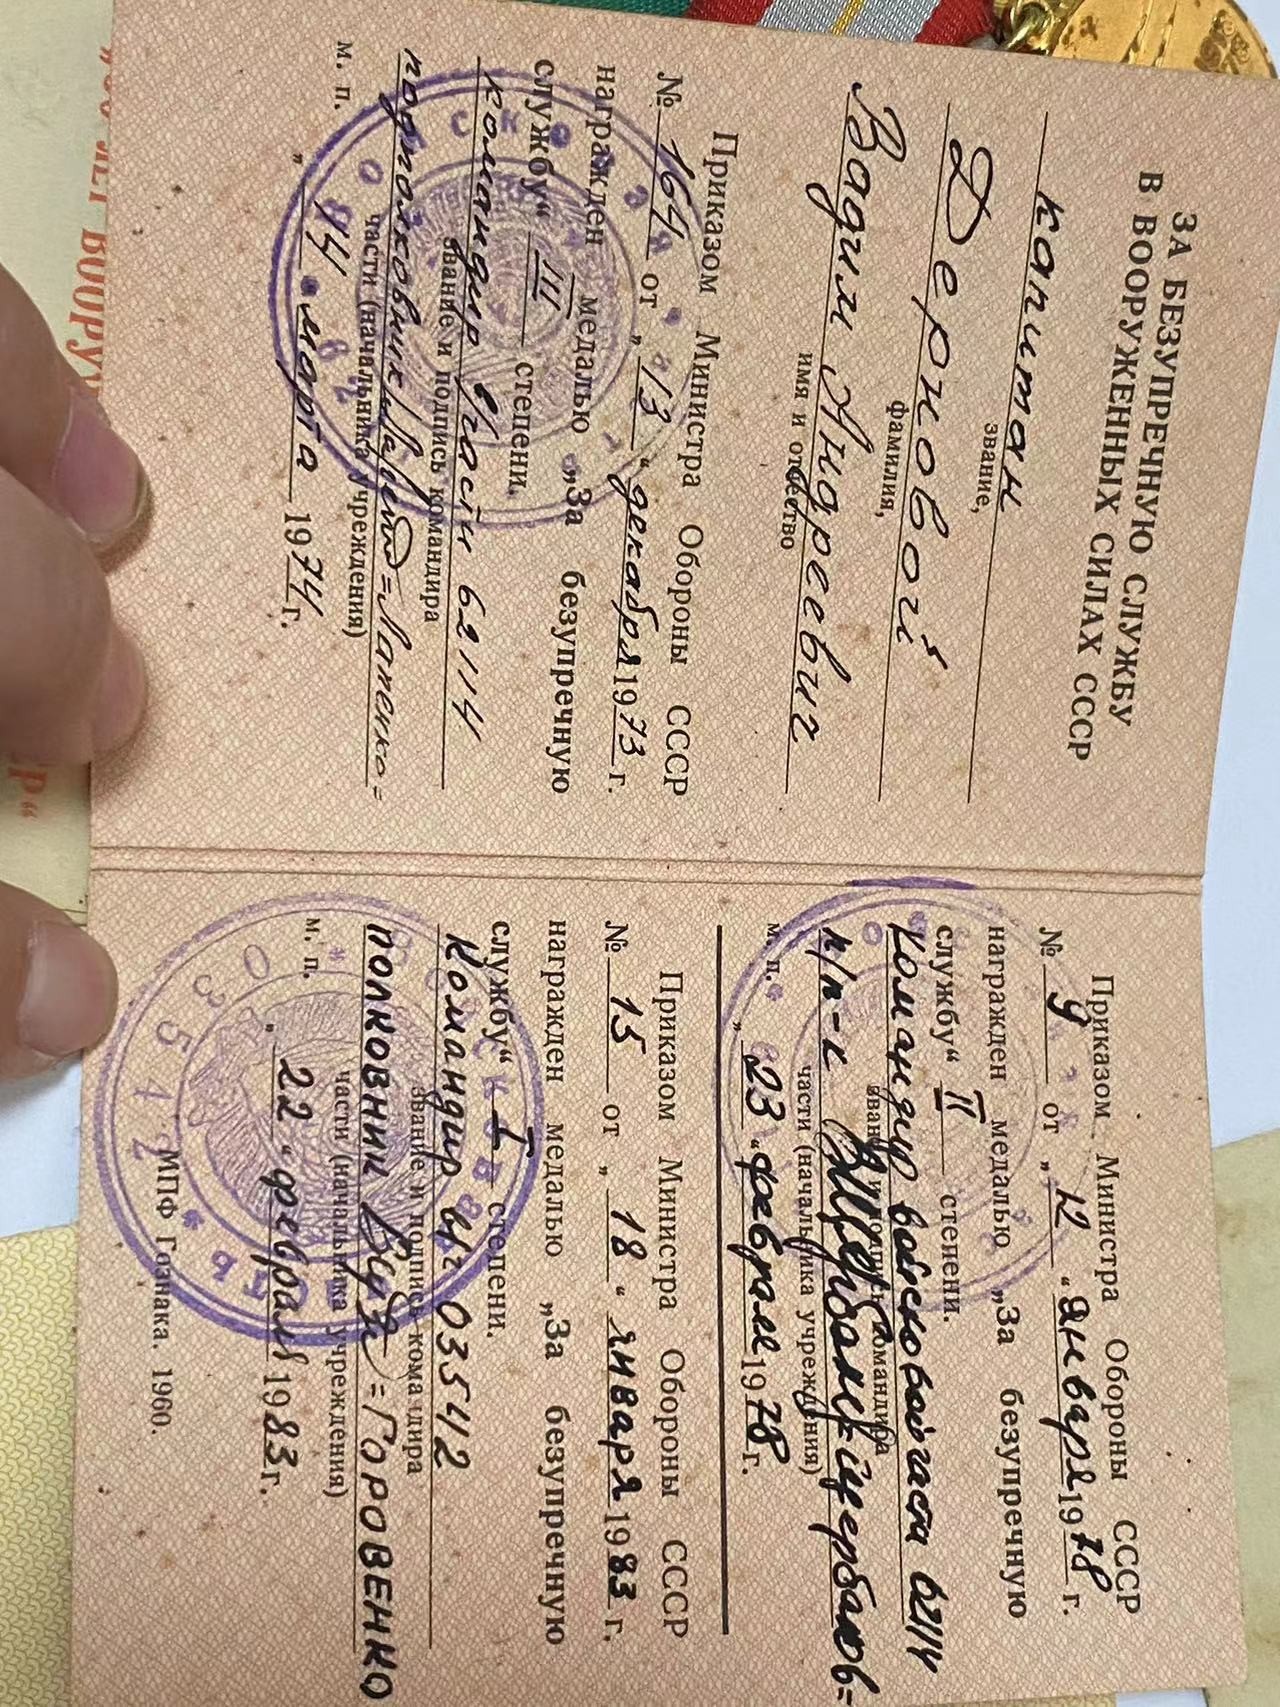 ЗА БЕЗУПРЕЧНУЮ СЛУЖБУ
В ВООРУЖЕННЫХ СИЛАХ СССР
капитан
звание,
Дерновой
фамилия,
Вадим Андреевич
имя и отчество
Приказом Министра Обороны СССР
№ 164 от „13“ декабря 1973 г.
награжден медалью „За безупречную
службу“ III степени.
командир части 62114
звание и подпись командира
подполковник =Лапенко=
части (начальника учреждения)
м. п.
„14“ марта 1974 г.
Приказом Министра Обороны СССР
№ 9 от „12“ января 1978 г.
награжден медалью „За безупречную
службу“ II степени.
Командир войсковой части 62114
звание и подпись командира
п/п-к =Щербаков=
части (начальника учреждения)
м. п.
„23“ февраля 1978 г.
Приказом Министра Обороны СССР
№ 15 от „18“ января 1983 г.
награжден медалью „За безупречную
службу“ I степени.
Командир ч 03542
звание и подпись командира
полковник =ГОРОВЕНКО
части (начальника учреждения)
м. п.
„22“ февраля 1983 г.
МПФ Гознака. 1960.
ЛЕТ ВООРУ
Р“